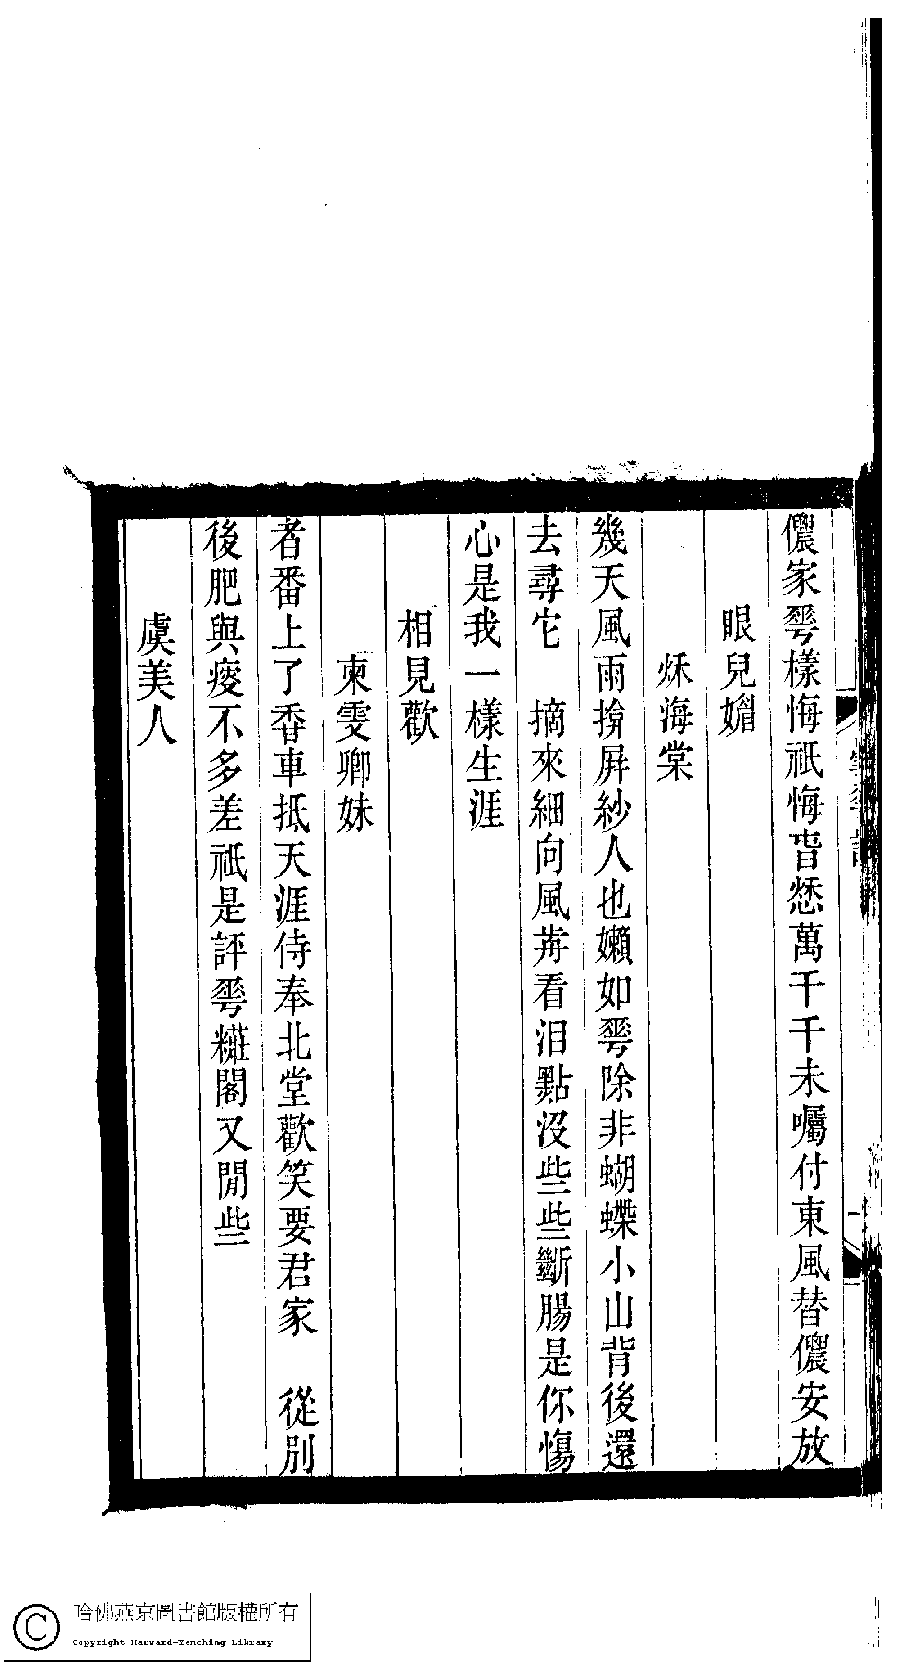 儂家甹樣悔祇悔旹愁萬千千未囑付東風替儂安放
眼兒媚
秌海棠
幾天風雨揜屏紗人也嬾如甹除非蝴蝶小山背後還
去尋它　摘來細向風歬看泪點沒些些斷腸是你傷
心是我一樣生涯
相見歡
柬雯卿妹
者番上了香車抵天涯侍奉北堂歡笑要君家　從別
後肥與瘦不多差祇是評甹糚閣又閒些
虞美人
哈佛燕京圖書館版權所有
Copyright Harvard-Yenching Library